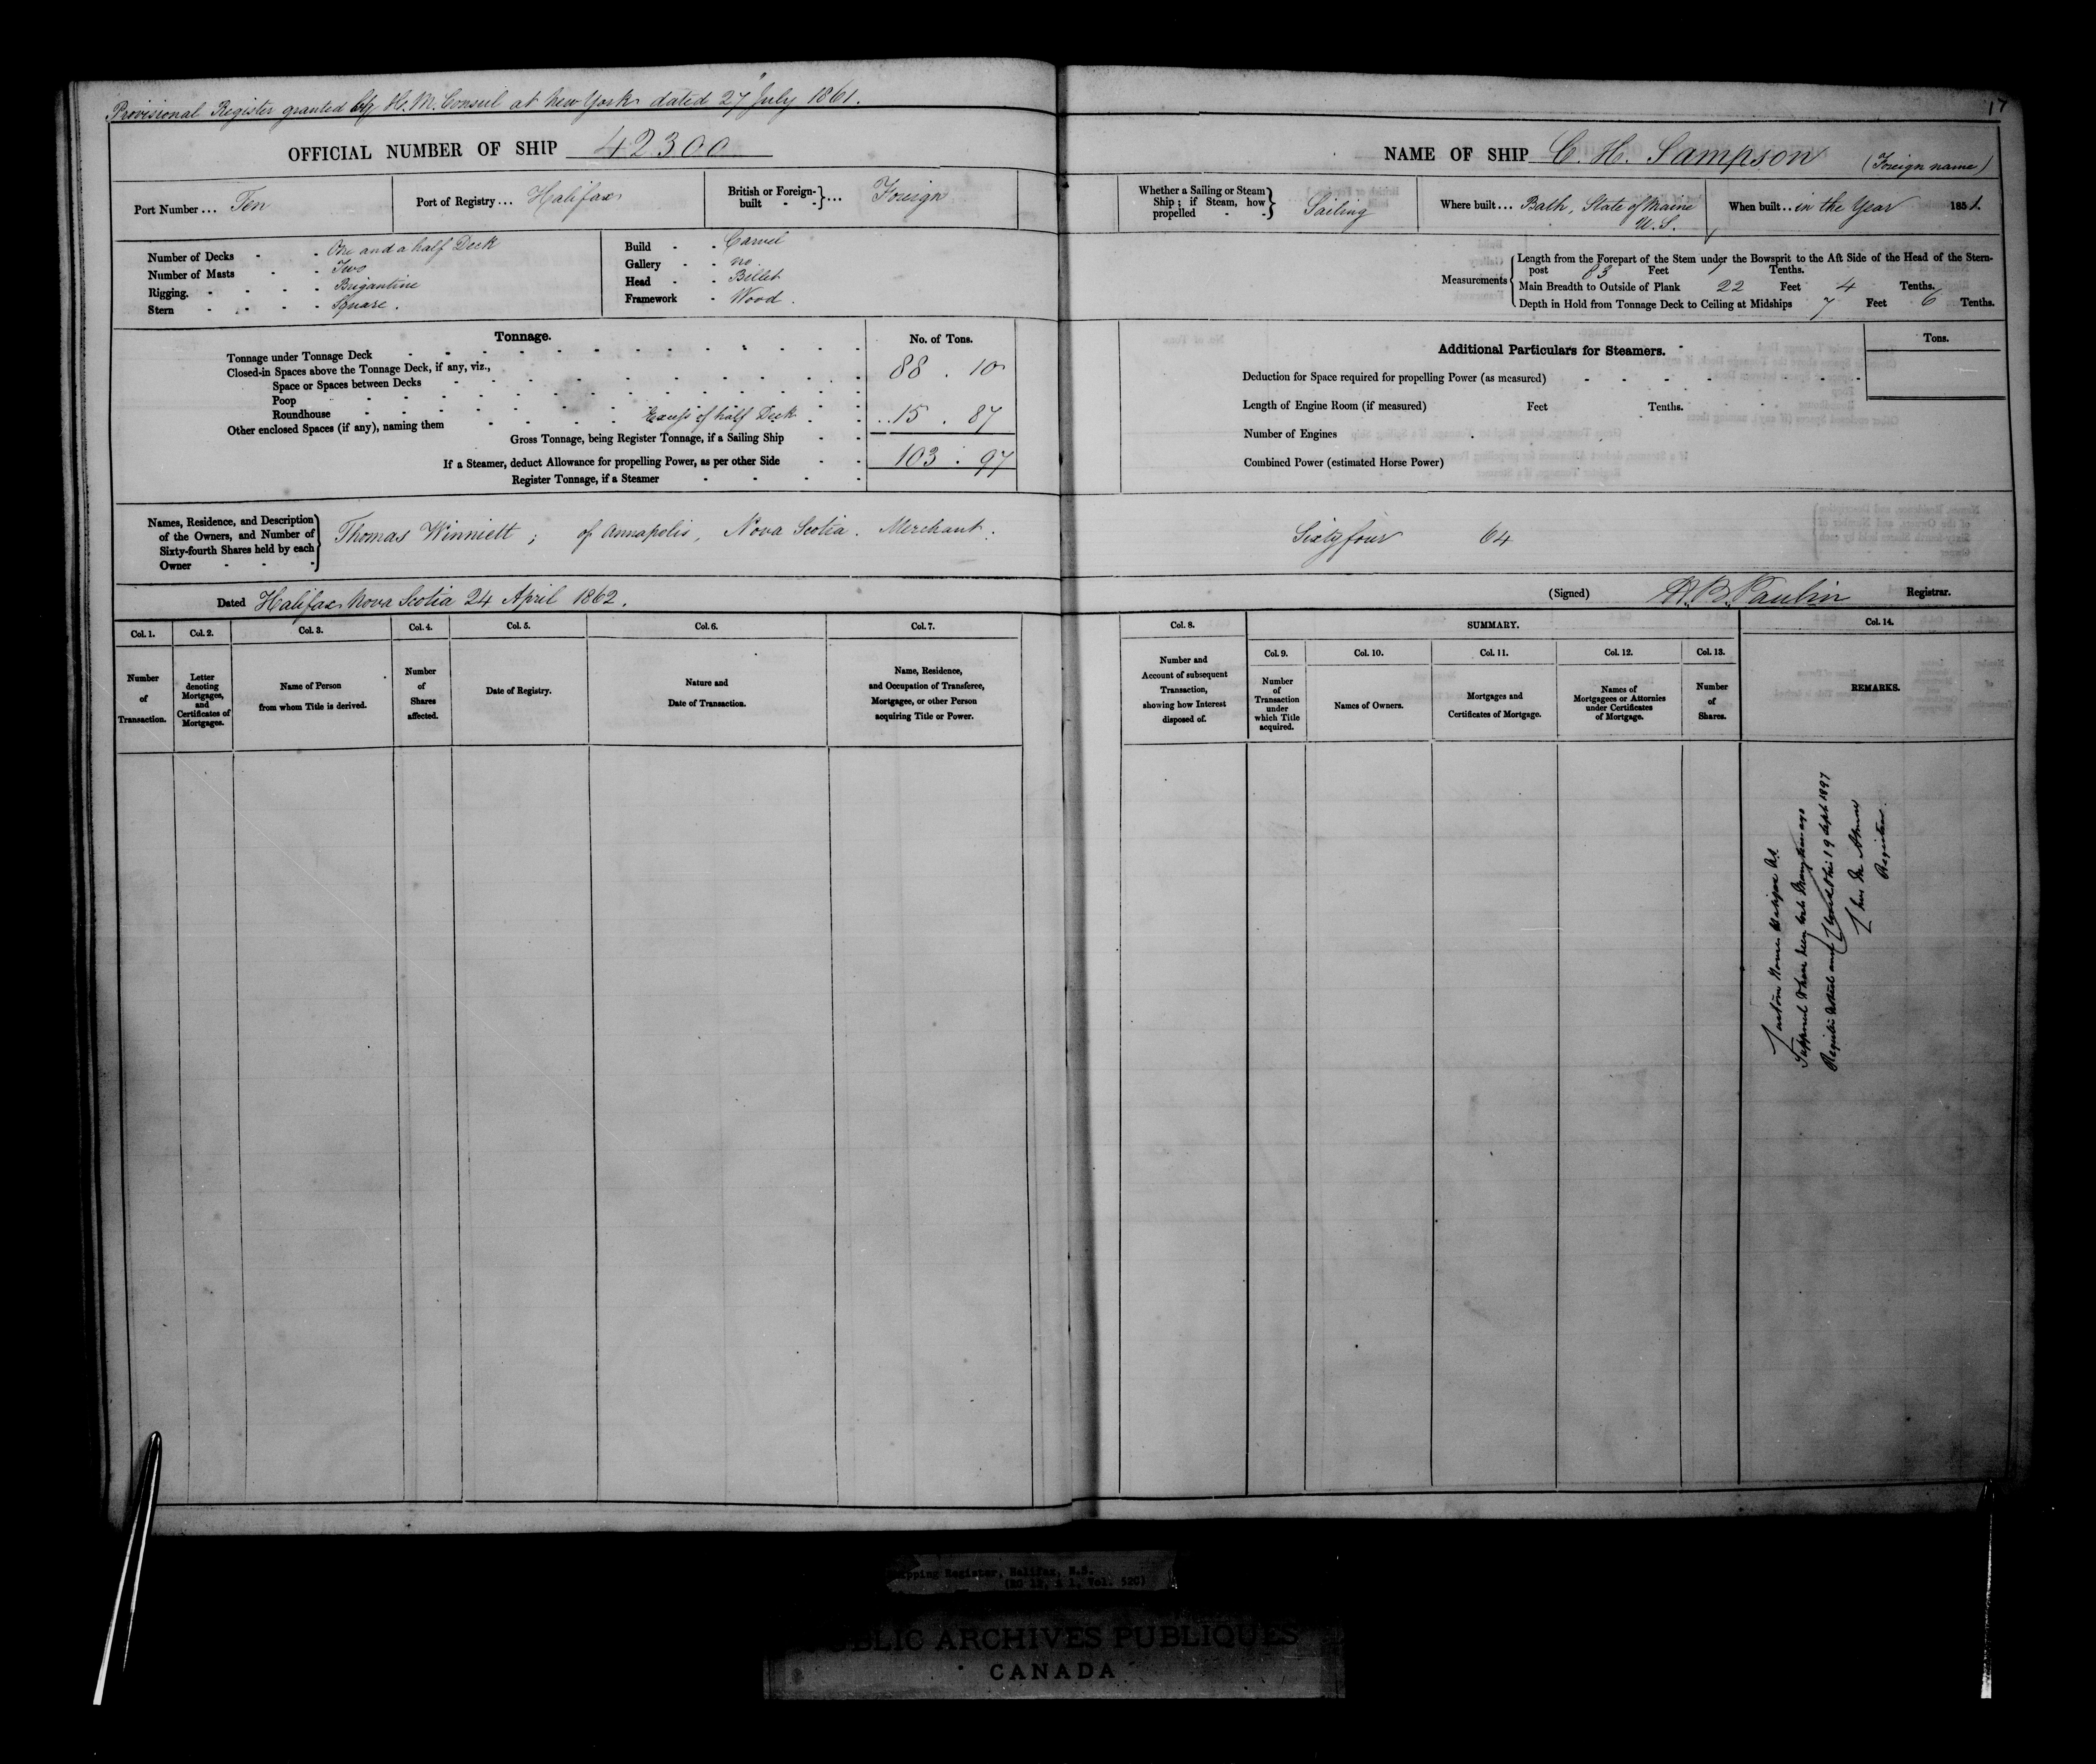 Provisional Register granted by H.M. Consul at New York dated 27 July 1861.
17
OFFICIAL NUMBER OF SHIP 42300
NAME OF SHIP C. H. Sampson (Foreign name)
Port Number ... Ten
Port of Registry ... Halifax
British or Foreign-built ... Foreign
Whether a Sailing or Steam Ship; if Steam, how propelled - - Sailing
Where built ... Bath, State of Maine U.S.
When built .. in the Year 185
Number of Decks - - One and a half Deck
Number of Masts - - Two
Rigging. - - - - Brigantine
Stern - - - - Square.
Build - - Carvel
Gallery - - no.
Head - - Billet
Framework - Wood.
Measurements
Length from the Forepart of the Stem under the Bowsprit to the Aft Side of the Head of the Stern-
post 83 Feet Tenths.
Main Breadth to Outside of Plank 22 Feet 4 Tenths.
Depth in Hold from Tonnage Deck to Ceiling at Midships 7 Feet 6 Tenths.
Tonnage.
No. of Tons.
Tonnage under Tonnage Deck
Closed-in Spaces above the Tonnage Deck, if any, viz.,
88 . 10
Space or Spaces between Decks
Poop
Roundhouse
Other enclosed Spaces (if any), naming them Excess of half Deck 15 . 87
Gross Tonnage, being Register Tonnage, if a Sailing Ship
103 . 97
If a Steamer, deduct Allowance for propelling Power, as per other Side
Register Tonnage, if a Steamer
Additional Particulars for Steamers.
Tons.
Deduction for Space required for propelling Power (as measured)
Length of Engine Room (if measured) Feet Tenths.
Number of Engines
Combined Power (estimated Horse Power)
Names, Residence, and Description
of the Owners, and Number of
Sixty-fourth Shares held by each
Owner
Thomas Winniett; of Annapolis, Nova Scotia. Merchant.
Sixty four 64
Dated Halifax Nova Scotia 24 April 1862.
(Signed) Paulin Registrar.
Col. 1.
Col. 2.
Col. 3.
Col. 4.
Col. 5.
Col. 6.
Col. 7.
Col. 8.
SUMMARY.
Col. 14.
Col. 9.
Col. 10.
Col. 11.
Col. 12.
Col. 13.
Number
of
Transaction.
Letter
denoting
Mortgages,
and
Certificates of
Mortgages.
Name of Person
from whom Title is derived.
Number
of
Shares
affected.
Date of Registry.
Nature and
Date of Transaction.
Name, Residence,
and Occupation of Transferee,
Mortgagee, or other Person
acquiring Title or Power.
Number and
Account of subsequent
Transaction,
showing how Interest
disposed of.
Number
of
Transaction
under
which Title
acquired.
Names of Owners.
Mortgages and
Certificates of Mortgage.
Names of
Mortgagees or Attornies
under Certificates
of Mortgage.
Number
of
Shares.
REMARKS.
Supposed to have been lost many years ago
this 19 Sept 1897
Registrar.
Shipping Register, Halifax, N.S.
(RG 12, A 1, Vol. 520)
PUBLIC ARCHIVES PUBLIQUES
CANADA